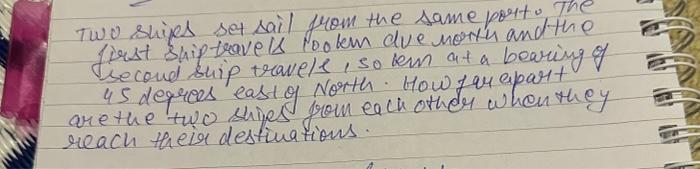 Two ships set sail from the same port. The
first ship travels 100km due north and the
second ship travels 150km at a bearing of
45 degrees east of North. How far apart
are the two ships from each other when they
reach their destinations.